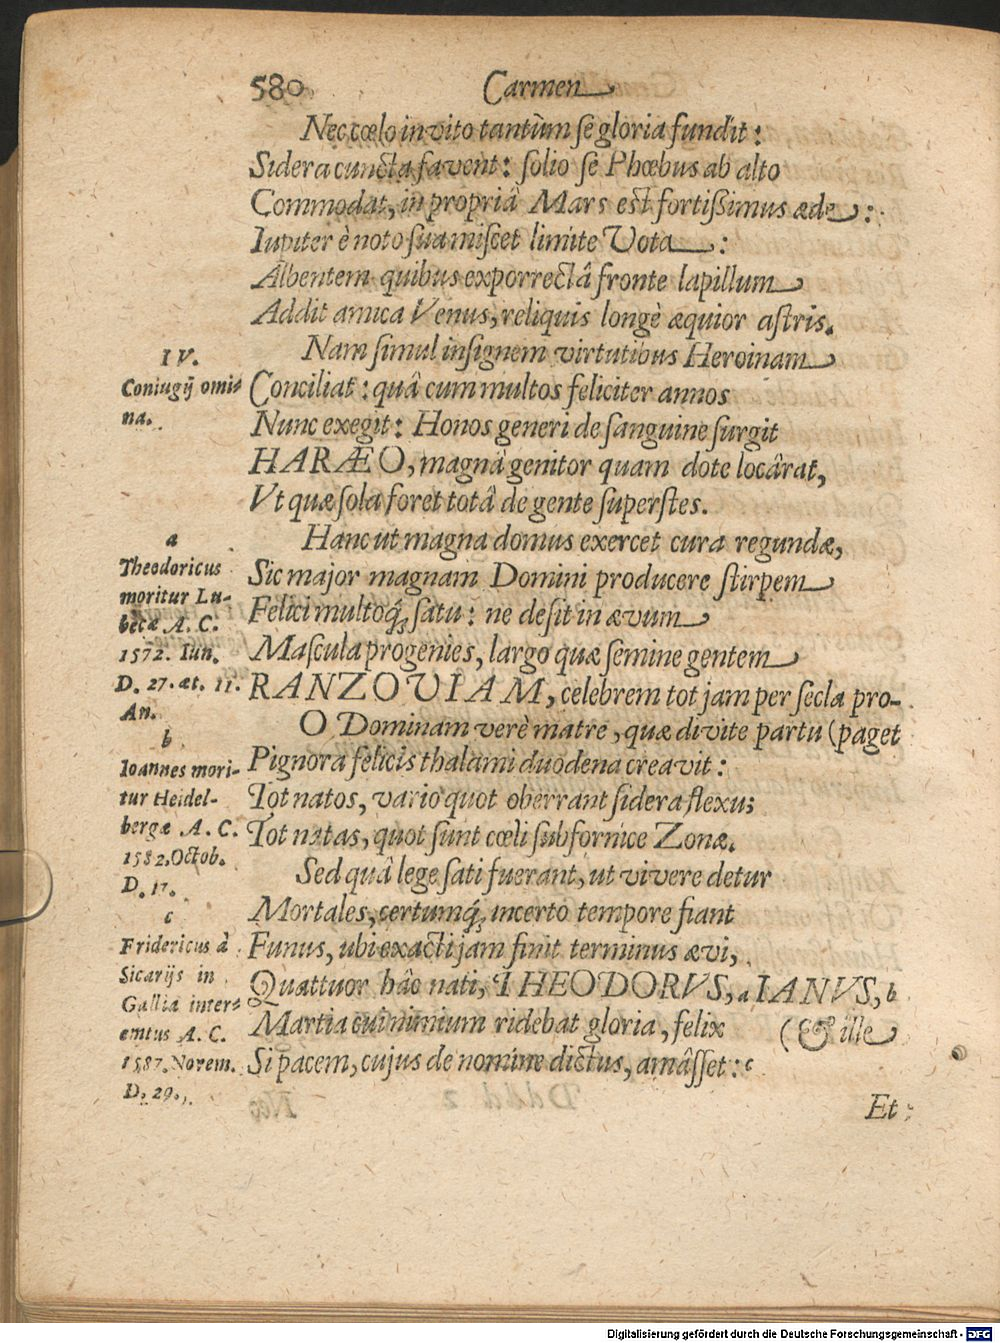 580 Carmen
Nec cœlo invito tantùm se gloria fundit:
Sidera cuncta favent: solio se Phœbus ab alto
Commodat, in propriâ Mars est fortißimus æde:
Iupiter è noto sua miscet limite Vota:
Albentem quibus exporrectâ fronte lapillum
Addit amica Venus, reliquis longè æquior astris.
Nam simul insignem virtutibus Heroinam
Conciliat: quâ cum multos feliciter annos
Nunc exegit: Honos generi de sanguine surgit
HARÆO, magnâ genitor quam dote locârat,
Vt quæ sola foret totâ de gente superstes.
Hanc ut magna domus exercet cura regundæ,
Sic major magnam Domini producere stirpem
Felici multoq́; satu: ne desit in ævum
Mascula progenies, largo quæ semine gentem
RANZOVIAM, celebrem tot jam per secla pro-
O Dominam verè matrē, quæ divite partu (paget
Pignora felicis thalami duodena creavit:
Tot natos, vario quot oberrant sidera flexu;
Tot natas, quot sunt cœli sub fornice Zonæ.
Sed quâ lege sati fuerant, ut vivere detur
Mortales, certumq́; incerto tempore fiant
Funus, ubi exacti jam finit terminus ævi,
Quattuor hâc nati, THEODORVS, a IANVS, b
Martia cui nimium ridebat gloria, felix (& ille
Si pacem, cujus de nomine dictus, amâsset: c
Et
IV.
Coniugij omi-
na.
a
Theodoricus
moritur Lu-
becæ A. C.
1572. Iun.
D. 27. æt. 11.
An.
b
Ioannes mori-
tur Heidel-
bergæ A. C.
1582. Octob.
D. 17.
c
Fridericus à
Sicarijs in
Gallia inter-
emtus A. C.
1587. Novem.
D. 29.
Digitalisierung gefördert durch die Deutsche Forschungsgemeinschaft - DFG